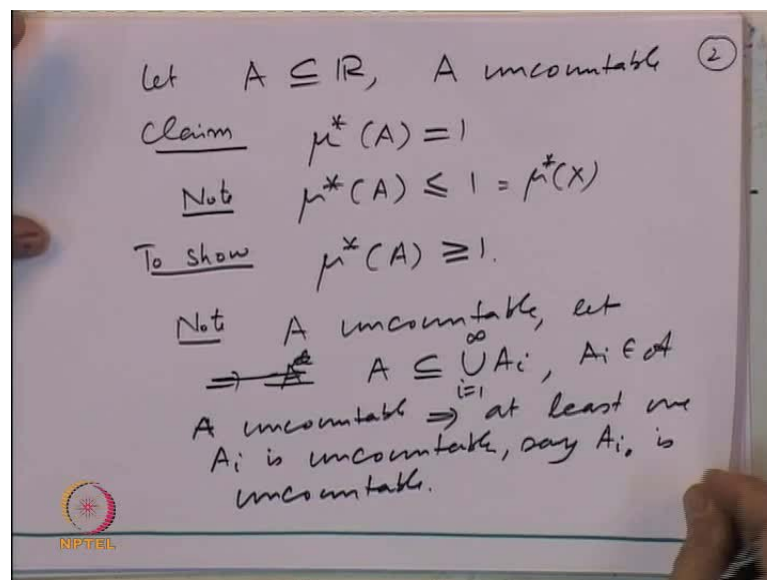 let A ⊆ IR, A uncountable ②
Claim μ*(A) = 1
Note μ*(A) ≤ 1 = μ*(X)
To show μ*(A) ≥ 1.
Note A uncountable, let
A ⊆ ∞⋃i=1 Ai, Ai ∈ 𝒜
A uncountable ⇒ at least one
Ai is uncountable, say Ai₀ is
uncountable.
NPTEL